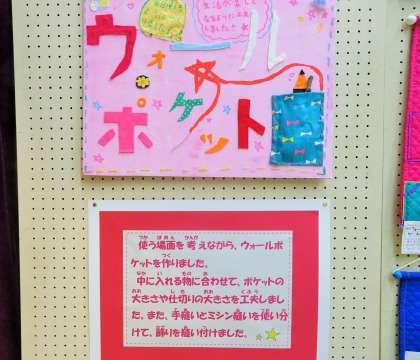 生活が楽しく
なるように工夫
しました!!
ウォール
ポケット
使う場面を考えながら、ウォールポ
ケットを作りました。
中に入れる物に合わせて、ポケットの
大きさや仕切りの大きさを工夫しまし
た。また、手縫いとミシン縫いを使い分
けて、飾りを縫い付けました。